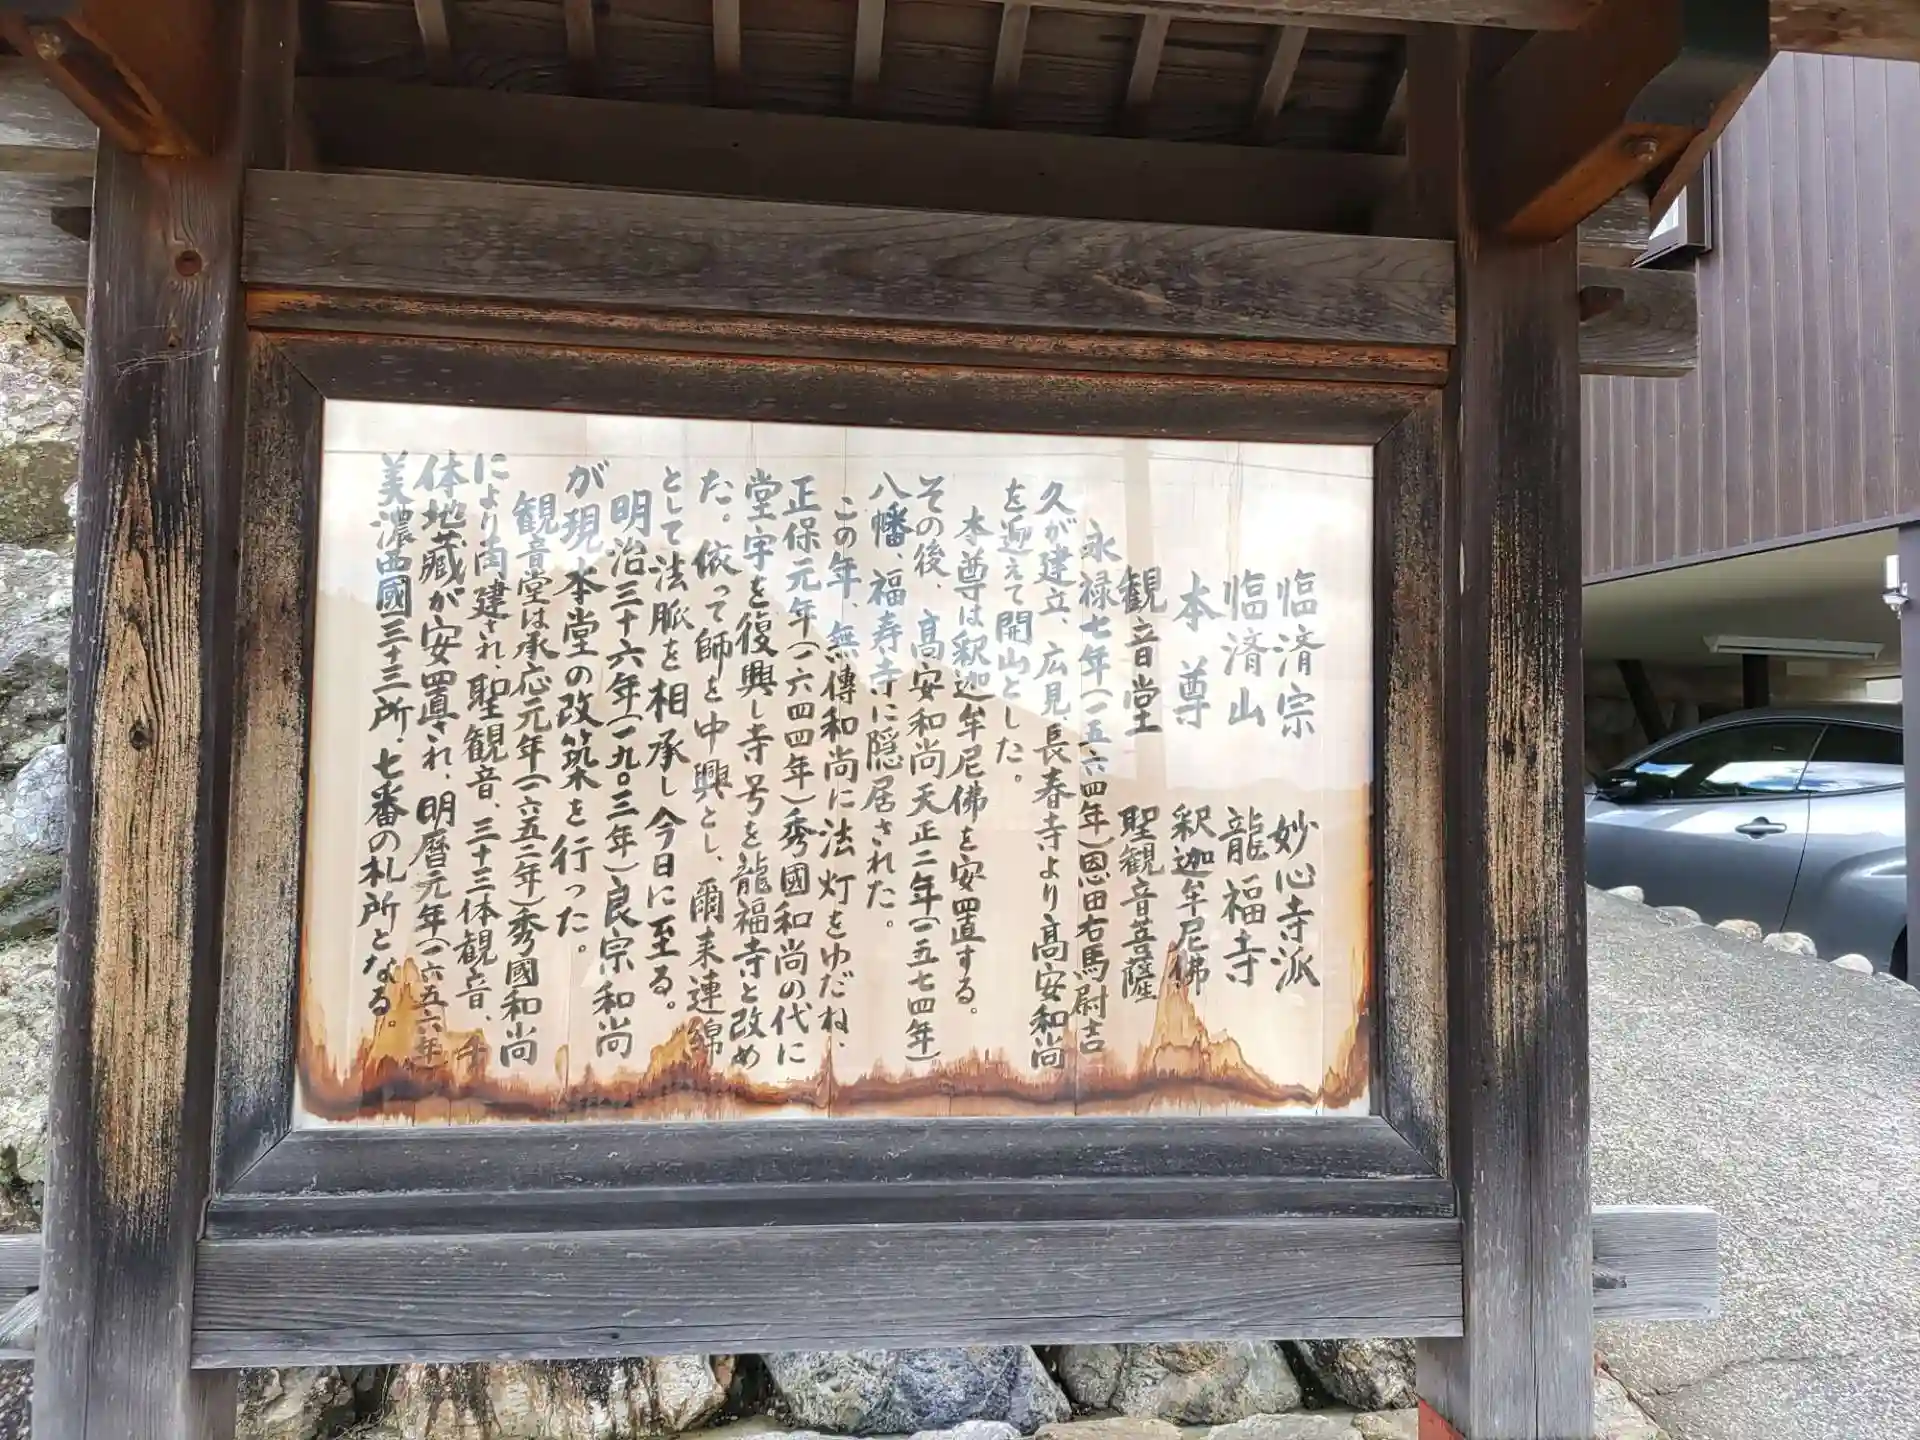 臨済宗 妙心寺派
臨済山 龍福寺
本尊 釈迦牟尼佛
観音堂 聖観音菩薩
永禄七年(一五六四年)恩田右馬尉吉
久が建立、広見、長春寺より高安和尚
を迎えて開山とした。
本尊は釈迦牟尼佛を安置する。
その後、高安和尚天正二年(一五七四年)
八幡、福寿寺に隠居された。
この年、無傳和尚に法灯をゆだね、
正保元年(一六四四年)秀國和尚の代に
堂宇を復興し寺号を龍福寺と改め
た。依って師を中興とし、爾来連綿
として法脈を相承し今日に至る。
明治三十六年(一九〇三年)良宗和尚
が現本堂の改築を行った。
観音堂は承応元年(一六五二年)秀國和尚
により再建され、聖観音、三十三体観音、千
体地蔵が安置され、明暦元年(一六五六年)
美濃西國三十三所、七番の札所となる。